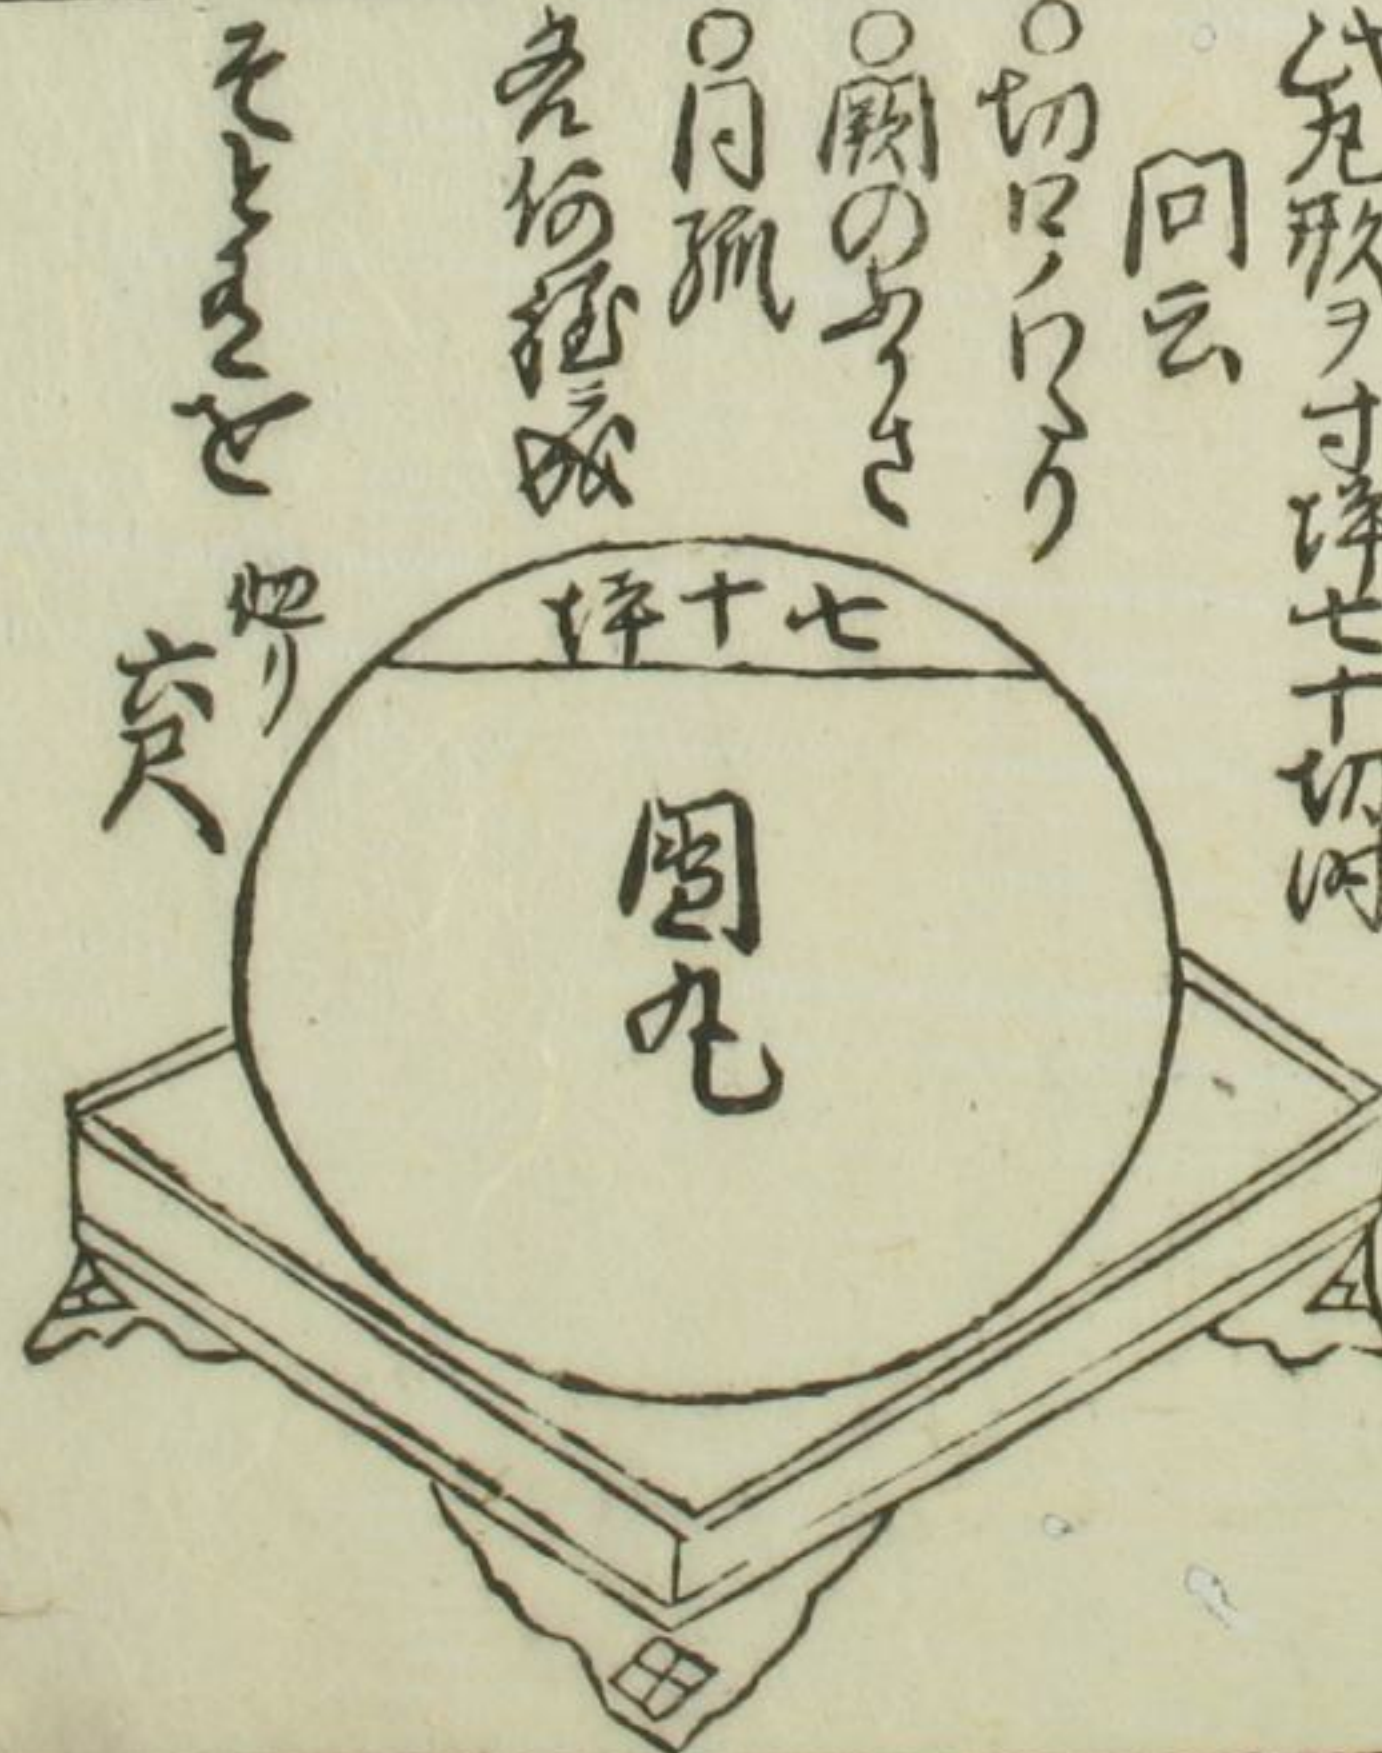 此丸形ヲ寸坪七十切時
問云
○切口ノわたり
○闕のふかさ
○同孤
各何程ニ成
そとまを
廻り
六尺
七十坪
圓丸